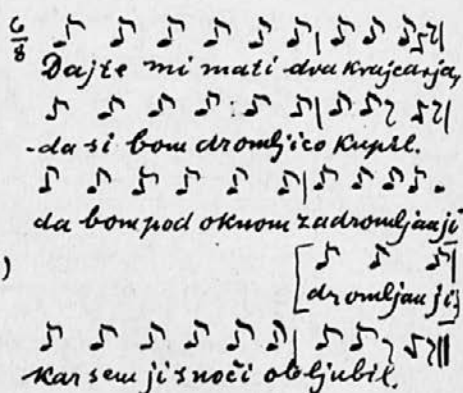 6/8
Dajte mi mati dva krajcarja,
da si bom dromljico kupil.
da bom pod oknom zadromljau ji
)
[dromljau ji;
kar sem ji snoči obljubil.